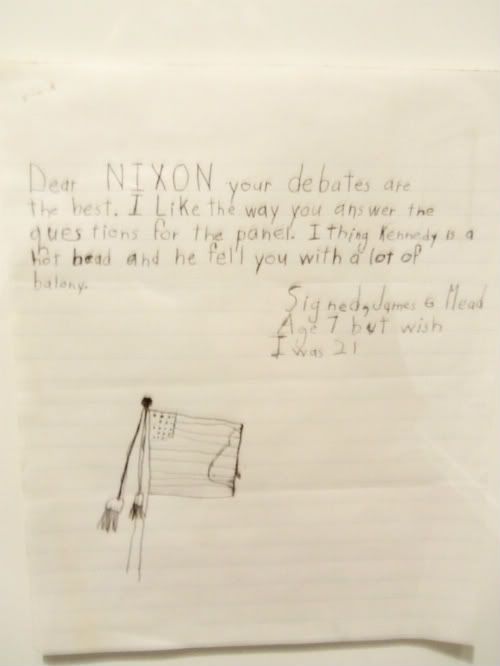 Dear NIXON your debates are
the best. I Like the way you answer the
questions for the panel. I thing Kennedy is a
hot head and he fell you with a lot of
balony.
Signed, James G Mead
Age 7 but wish
I was 21